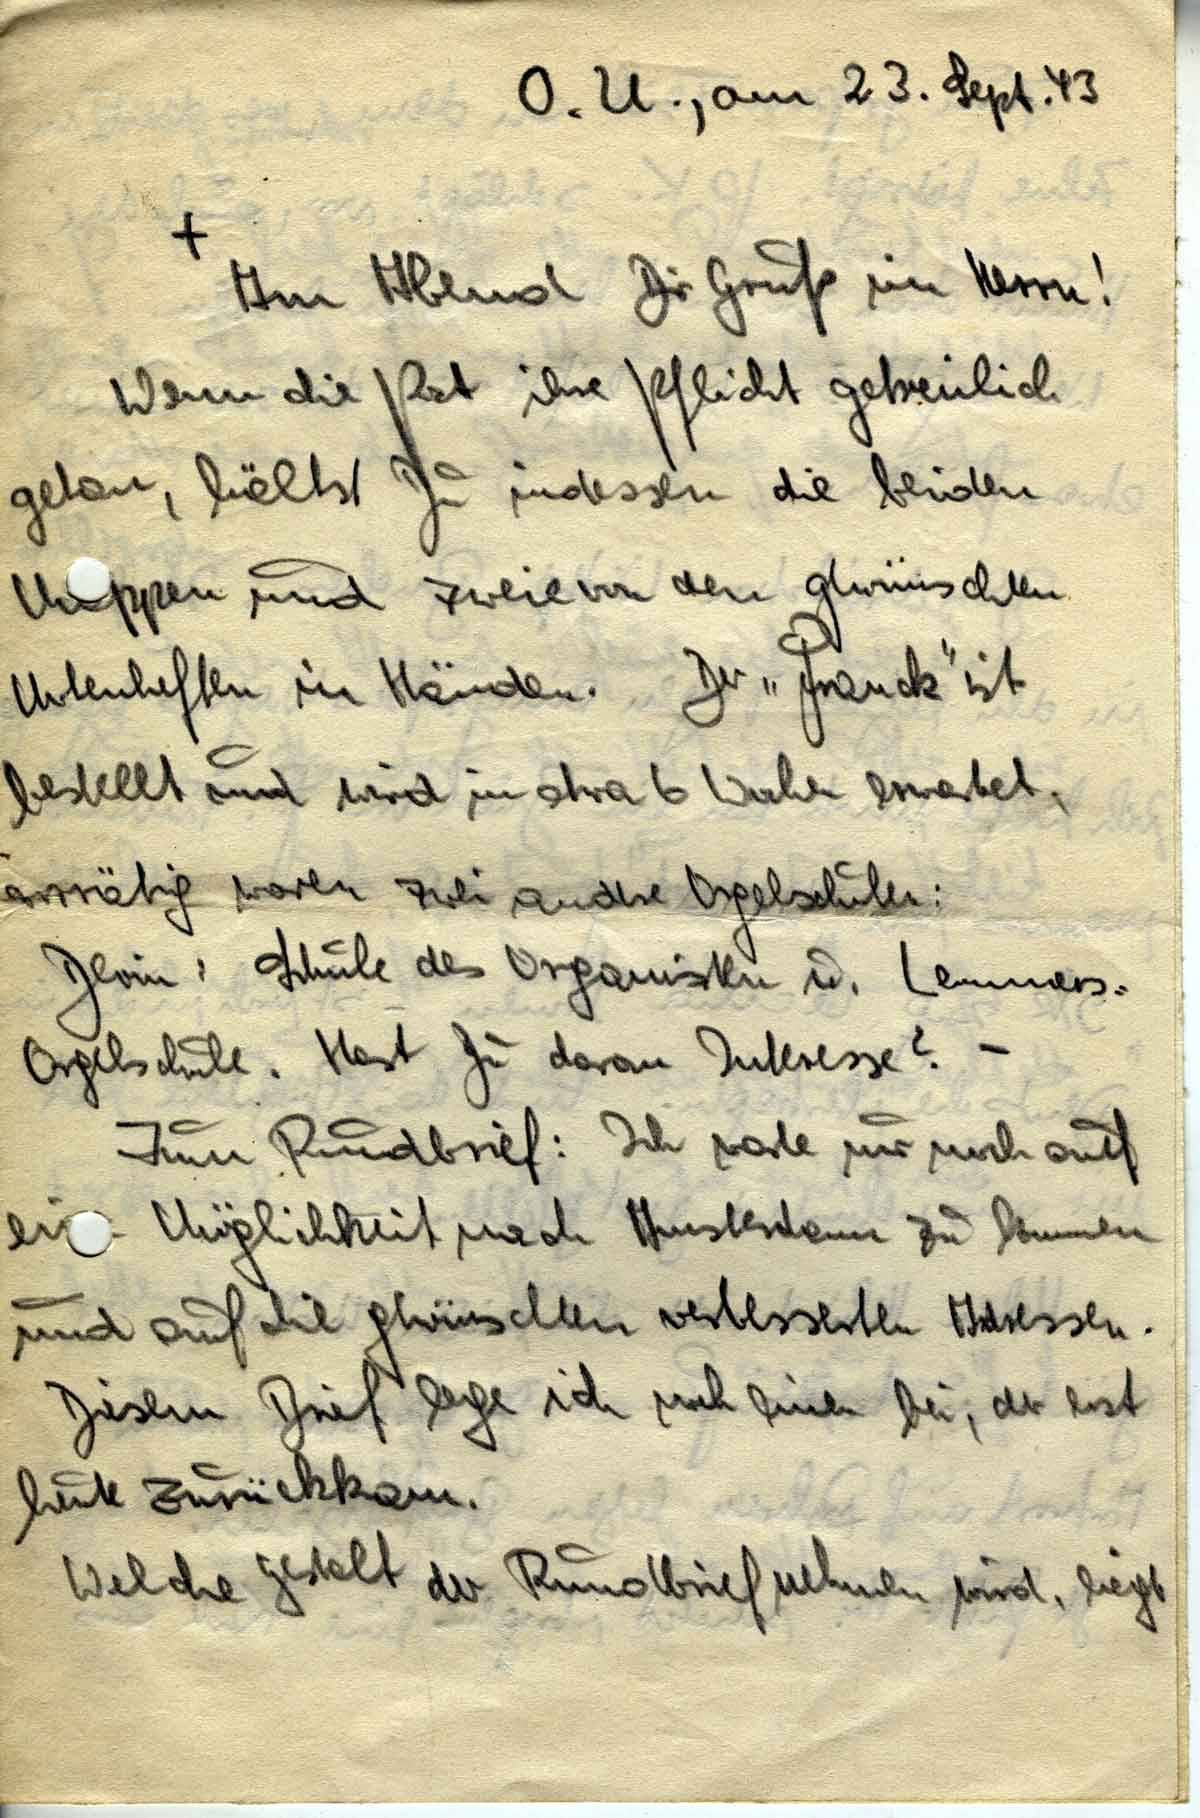 O. U., am 23. Sept. 43
+
Am Abend Dir Gruß im Herrn!
Wenn die Post ihre Pflicht getreulich
getan, hältst Du indessen die beiden
Mappen und zweie von den gewünschten
Notenheften in Händen. Der „Franck" ist
bestellt und wird in etwa 6 Wochen erwartet,
vorrätig waren zwei andre Orgelschulen:
Schule des Organisten u. Lemmens-
Orgelschule. Hast Du daran Interesse? –
Zum Rundbrief: Ich warte nur noch auf
eine Möglichkeit nach Amsterdam zu kommen
und auf die gewünschten verbesserten Adressen.
Diesem Brief lege ich noch einen bei, der erst
heute zurückkam.
Welche Gestalt der Rundbrief nehmen wird, liegt